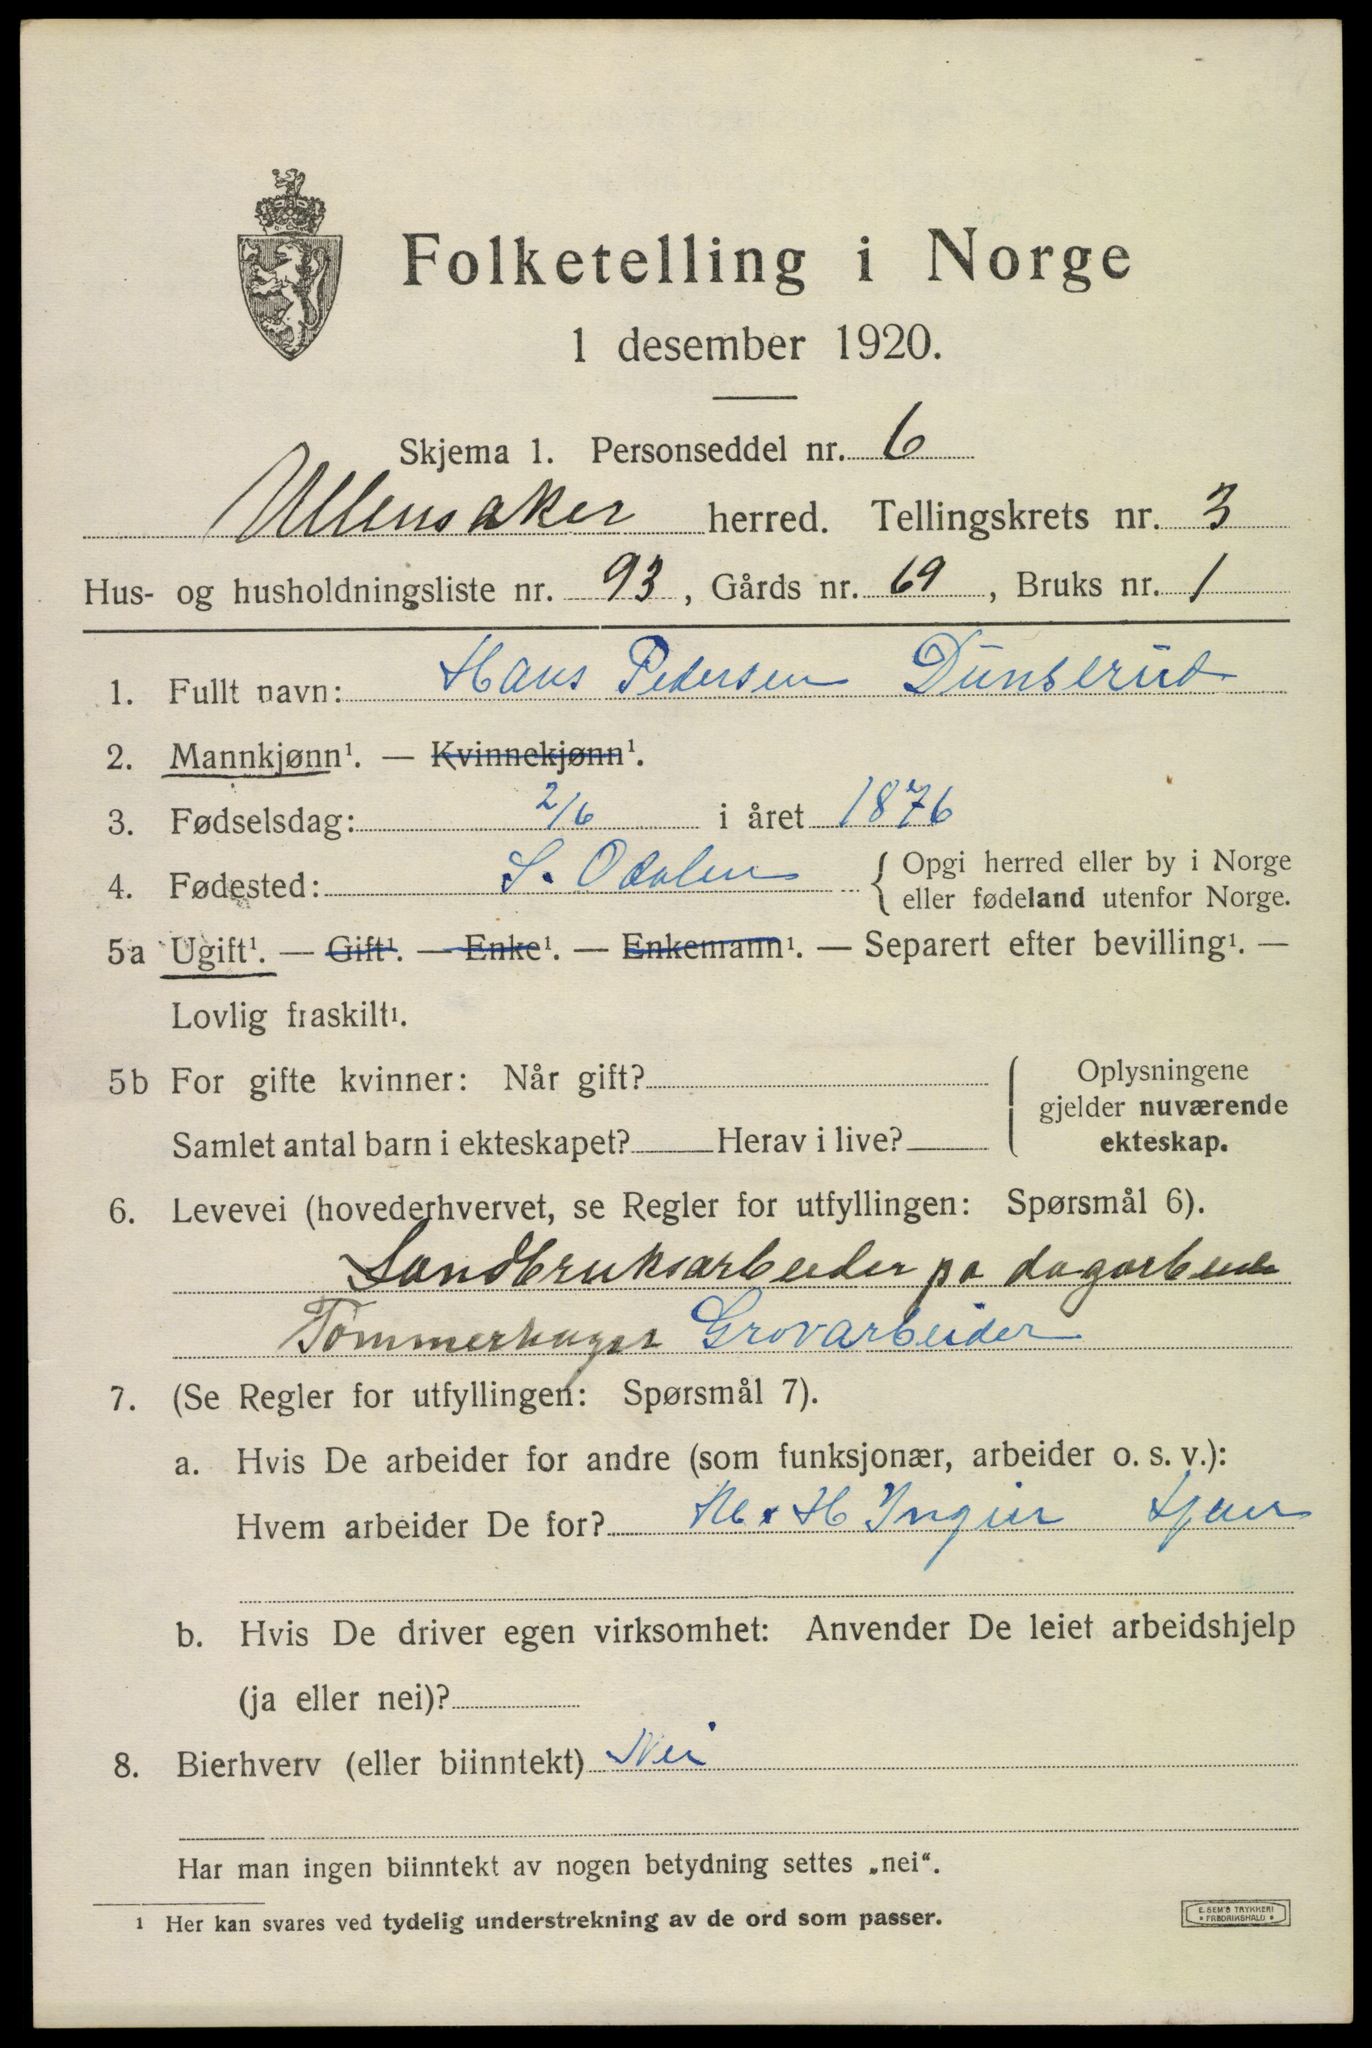 Folketelling i Norge
1 desember 1920.
Skjema 1. Personseddel nr. 6
Ullensaker herred. Tellingskrets nr. 3
Hus- og husholdningsliste nr. 93, Gårds nr. 69, Bruks nr. 1
1. Fullt navn: Hans Pedersen Dunserud
2. Mannkjønn¹. — Kvinnekjønn¹.
3. Fødselsdag: 2/6 i året 1876
4. Fødested: S. Odalen { Opgi herred eller by i Norge
eller fødeland utenfor Norge.
5a Ugift¹. — Gift¹. — Enke¹. — Enkemann¹. — Separert efter bevilling¹. —
Lovlig fraskilt¹.
5b For gifte kvinner: Når gift?
Samlet antal barn i ekteskapet? Herav i live?
Oplysningene
gjelder nuværende
ekteskap.
6. Levevei (hovederhvervet, se Regler for utfyllingen: Spørsmål 6).
Landbruksarbeider pa dagarbeide
Tømmerhuger Grovarbeider
7. (Se Regler for utfyllingen: Spørsmål 7).
a. Hvis De arbeider for andre (som funksjonær, arbeider o. s. v.):
Hvem arbeider De for? H Ingier
b. Hvis De driver egen virksomhet: Anvender De leiet arbeidshjelp
(ja eller nei)?
8. Bierhverv (eller biinntekt) Nei
Har man ingen biinntekt av nogen betydning settes „nei“.
¹ Her kan svares ved tydelig understrekning av de ord som passer.
E. SEM'S TRYKKERI
• FREDRIKSHALD •